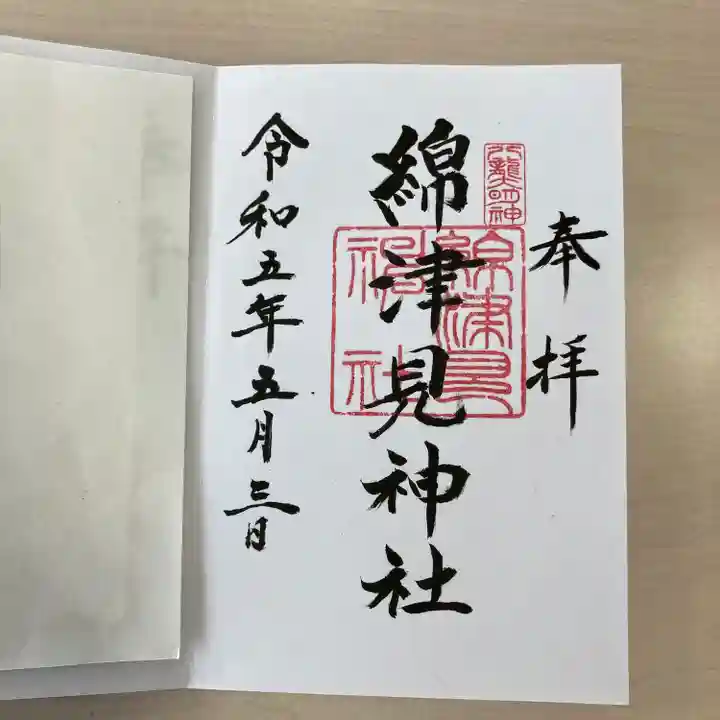 奉拝
八龍大明神
綿津見神社
綿津見神社
令和五年五月三日